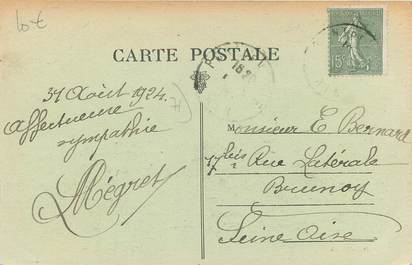 10 €
CARTE POSTALE
15c
31 Août 1924.
Affectueuse
sympathie
Mégret
Monsieur E. Bernard
Rue Latérale
Brunoy
Seine Oise